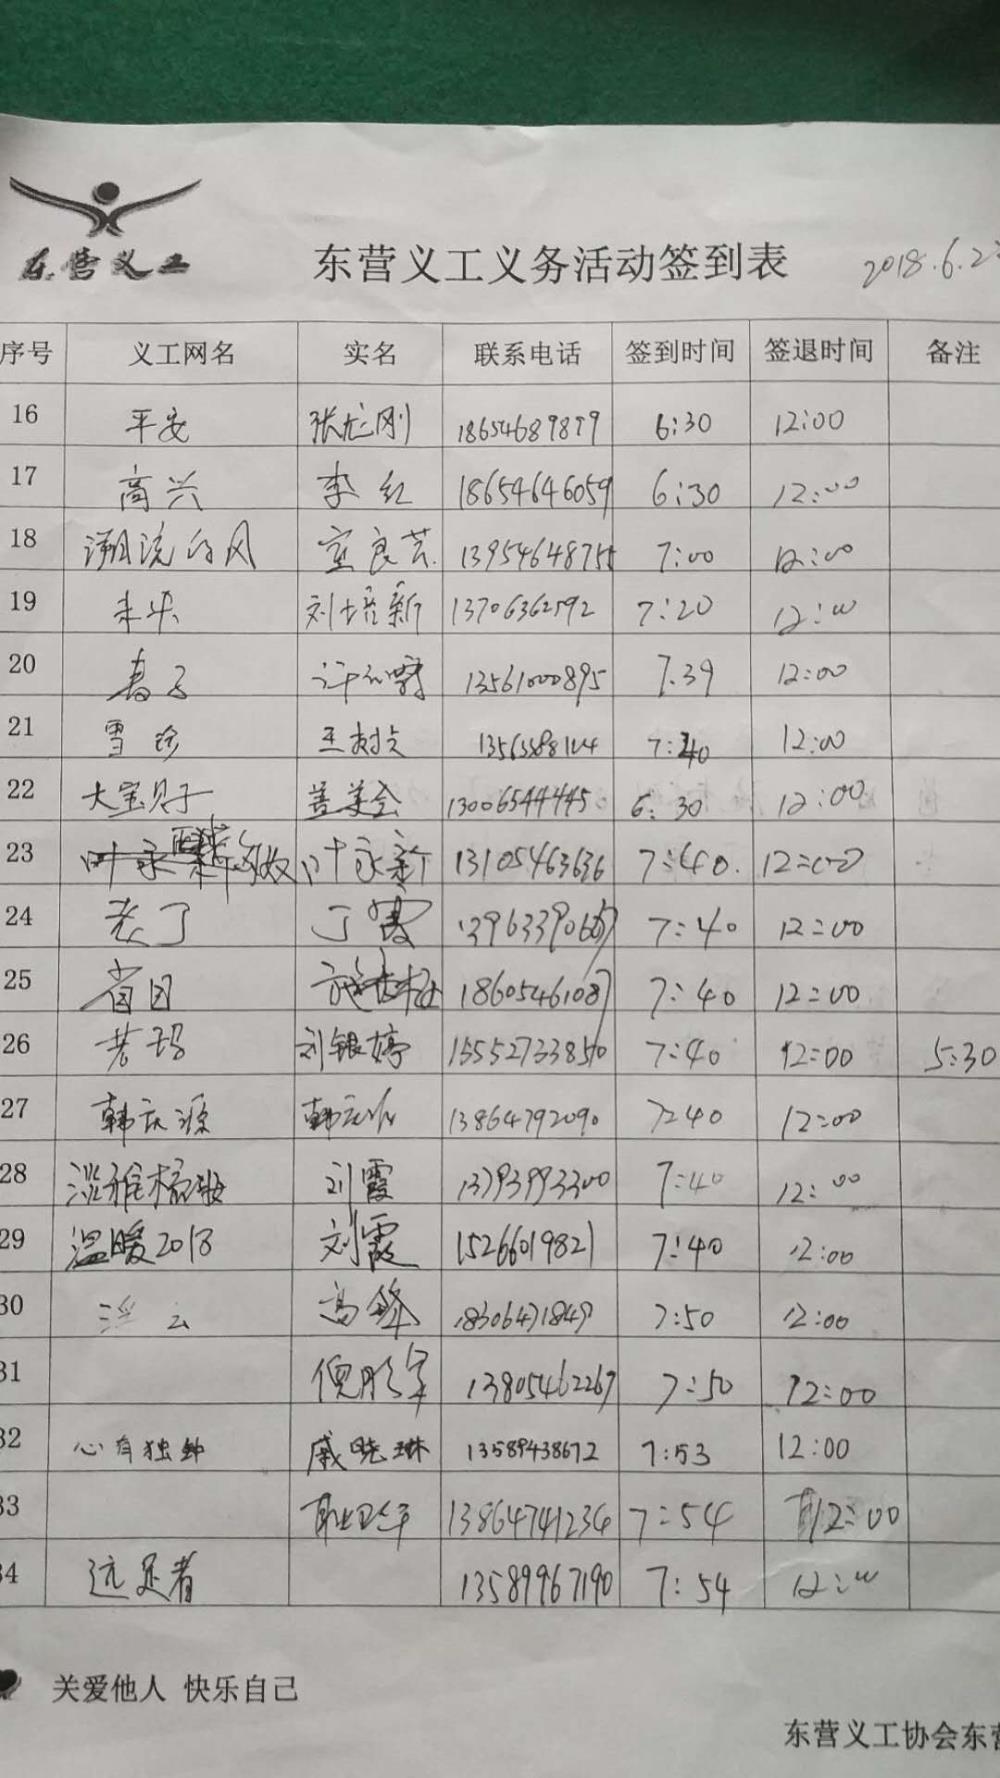 东营义工
东营义工义务活动签到表 2018.6.2
序号 义工网名 实名 联系电话 签到时间 签退时间 备注
16 平安 张龙刚 18654689879 6:30 12:00
17 高兴 李红 18654646059 6:30 12:00
18 溯流的风 良芸 13954648755 7:00 12:00
19 未央 刘培新 13706362592 7:20 12:00
20 春子 许 13561000895 7.39 12:00
21 雪珍 王 7:40 12:00
22 大宝贝子 盖美会 13006544445 6:30 12:00
23 叶永新 13105463636 7:40. 12:00
24 老丁 丁霞 7:40 12:00
25 18605461087 7:40 12:00
26 刘银婷 15552733850 7:40 12:00 5:30
27 韩庆源 韩庆 13864792090 7:40 12:00
28 淡雅 刘霞 13793993300 7:40 12:00
29 温暖2018 刘霞 15266019821 7:40 12:00
30 浮云 高锋 18306471849 7:50 12:00
31 倪彤军 13805462267 7:50 12:00
32 心有独钟 戚晓琳 13589438672 7:53 12:00
33 13864741234 7:54 12:00
34 远足者 13589967190 7:54 12:00
关爱他人 快乐自己
东营义工协会东营